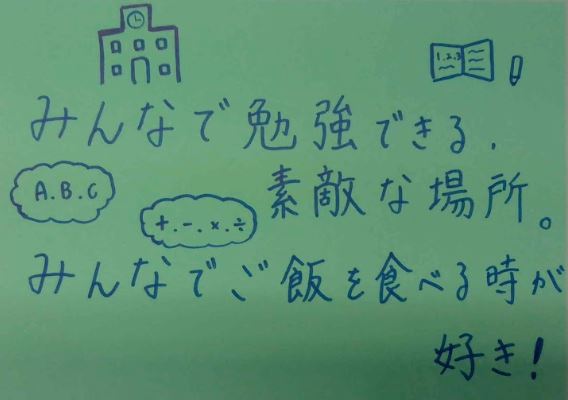 1.2.3
みんなで勉強できる、
A.B.C
素敵な場所。
+.-.×.÷
みんなでご飯を食べる時が
好き!